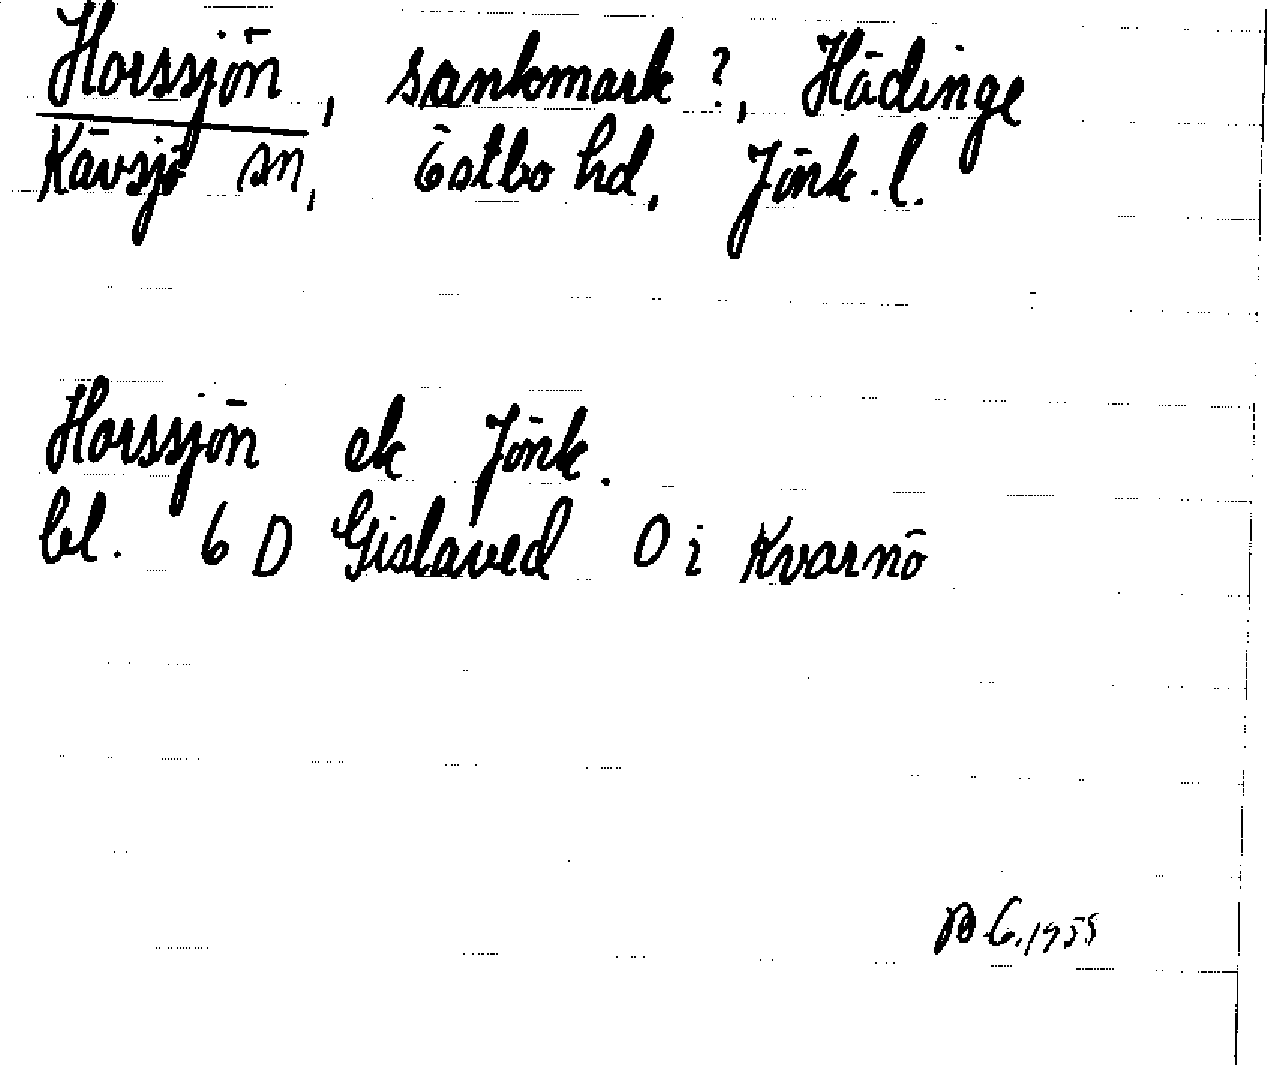 Horssjön, sankmark ?, Hädinge
Kävsjö sn, Östbo hd, Jönk. l.
Horssjön ek Jönk.
bl. 6 D Gislaved 0 i Kvarnö
1955